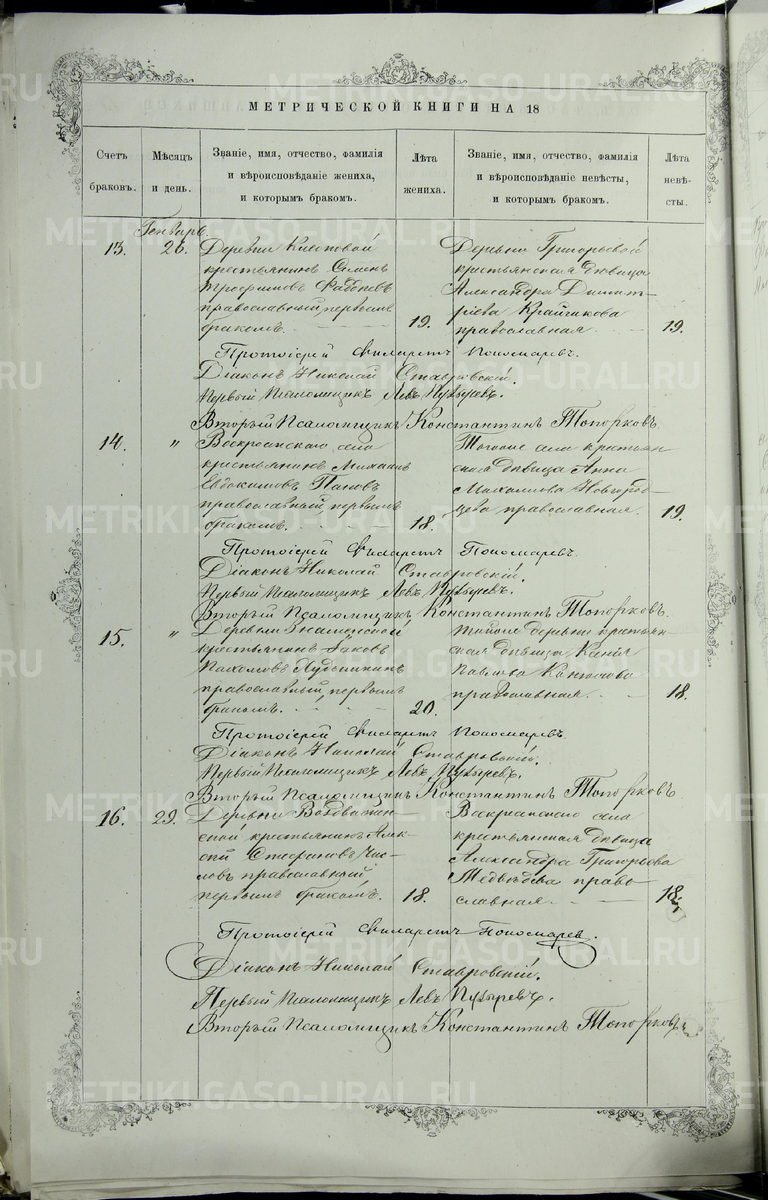 МЕТРИЧЕСКОЙ КНИГИ НА 18
Счетъ браковъ.
Мѣсяцъ и день.
Званіе, имя, отчество, фамилія и вѣроисповѣданіе жениха, и которымъ бракомъ.
Лѣта жениха.
Званіе, имя, отчество, фамилія и вѣроисповѣданіе невѣсты, и которымъ бракомъ.
Лѣта невѣсты.
Генварь.
13.
26.
Деревни
крестьянинъ Семенъ
Трофимовъ
православный, первымъ
бракомъ.
19.
Деревни Григорьевой
крестьянская дѣвица
Александра Димит-
ріева Крайчикова
православная.
19.
Протоіерей Филаретъ Пономаревъ.
Діаконъ Николай Ставровскій.
Первый Псаломщикъ Левъ Пузыревъ.
Второй Псаломщикъ Константинъ Топорковъ
14.
"
Воскресенскаго села
крестьянинъ Михаилъ
Евдокимовъ Пановъ
православный, первымъ
бракомъ.
18.
Тогоже села крестьян-
ская дѣвица Анна
Новгород-
цева православная.
19.
Протоіерей Филаретъ Пономаревъ.
Діаконъ Николай Ставровскій.
Первый Псаломщикъ Левъ Пузыревъ.
Второй Псаломщикъ Константинъ Топорковъ.
15.
"
Деревни Знаменской
крестьянинъ Іаковъ
Пахомовъ
православный, первымъ
бракомъ.
20.
деревни крестьян-
ская дѣвица
Павлова
православная.
18.
Протоіерей Филаретъ Пономаревъ
Діаконъ Николай Ставровскій.
Первый Псаломщикъ Левъ Пузыревъ.
Второй Псаломщикъ Константинъ Топорковъ
16.
29.
Деревни Воздвижен-
ской крестьянинъ Алек-
сѣй Стефановъ Чис-
ловъ православный
первымъ бракомъ.
18.
Воскресенскаго села
крестьянская дѣвица
Александра Григорьева
Медвѣдева право-
славная.
18.
Протоіерей Филаретъ Пономаревъ.
Діаконъ Николай Ставровскій.
Первый Псаломщикъ Левъ Пузыревъ.
Второй Псаломщикъ Константинъ Топорковъ
METRIKI.GASO-URAL.RU